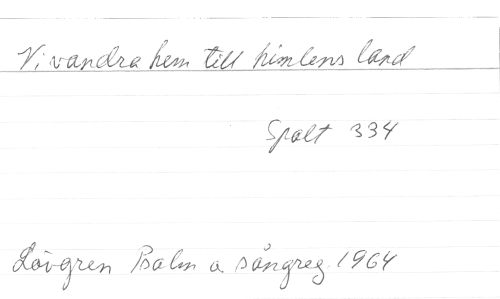 Vi vandra hem till himlens land
Spalt 334
Lövgren Psalm o sångreg. 1964